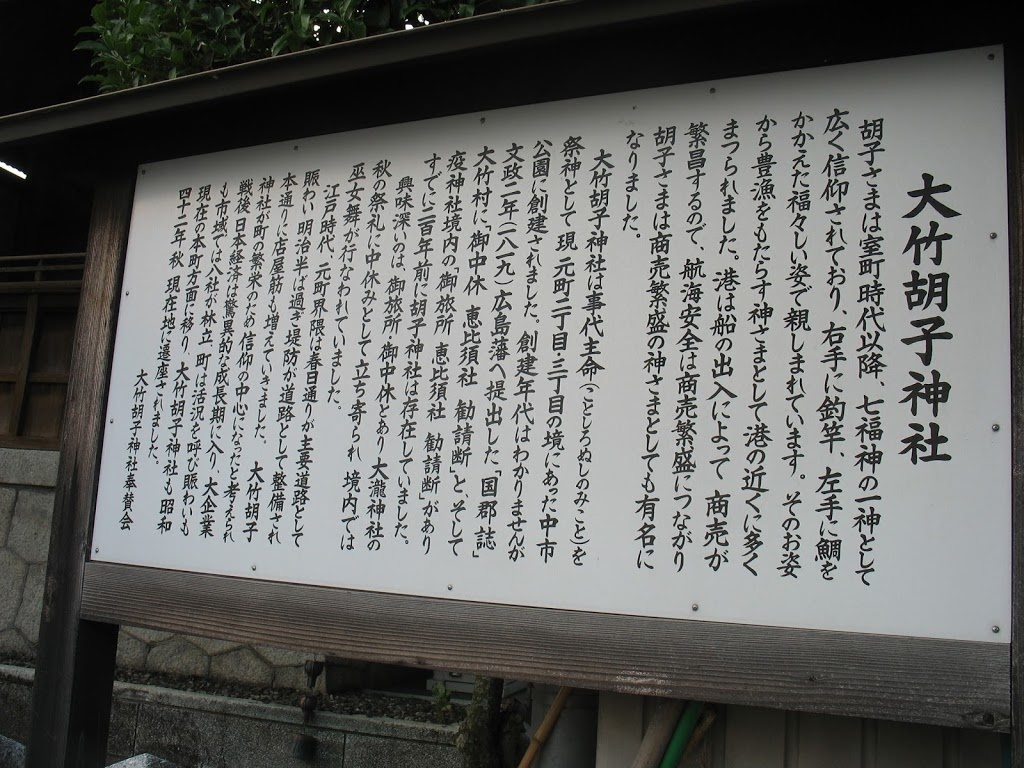 大竹胡子神社
胡子さまは室町時代以降、七福神の一神として
広く信仰されており、右手に釣竿、左手に鯛を
かかえた福々しい姿で親しまれています。そのお姿
から豊漁をもたらす神さまとして港の近くに多く
まつられました。港は船の出入によって商売が
繁昌するので、航海安全は商売繁盛につながり
胡子さまは商売繁盛の神さまとしても有名に
なりました。
大竹胡子神社は事代主命(ことしろぬしのみこと)を
祭神として現 元町二丁目・三丁目の境にあった中市
公園に創建されました。創建年代はわかりませんが
文政二年(一八一九)広島藩へ提出した「国郡誌」
大竹村に「御中休 恵比須社 勧請断」と、そして
疫神社境内の「御旅所 恵比須社 勧請断」があり
すでに二百年前に胡子神社は存在していました。
興味深いのは、御旅所・御中休とあり大瀧神社の
秋の祭礼に中休みとして立ち寄られ 境内では
巫女舞が行なわれていました。
江戸時代、元町界隈は春日通りが主要道路として
賑わい 明治半ば過ぎ 堤防が道路として整備され
本通りに店屋筋も増えていきました。 大竹胡子
神社が町の繁栄のため信仰の中心になったと考えられ
戦後 日本経済は驚異的な成長期に入り、大企業
も市域では八社が林立、町は活況を呼び賑わいも
現在の本町方面に移り、大竹胡子神社も昭和
四十二年秋 現在地に遷座されました。
大竹胡子神社奉賛会